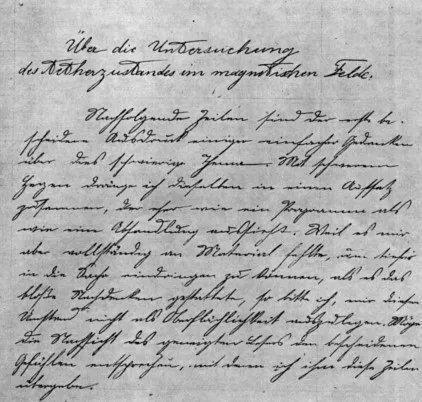 Über die Untersuchung
des Ætherzustandes im magnetischen Felde.
Nachfolgende Zeilen sind der erste be-
scheidene Ausdruck einiger einfacher Gedanken
über dies schwierige Thema. Mit schwerem
Herzen dränge ich dieselben in einen Aufsatz
zusammen, der eher wie ein Programm als
wie eine Abhandlung aussieht. Weil es mir
aber vollständig an Material fehlte, um tiefer
in die Sache eindringen zu können, als es das
bloße Nachdenken gestattete, so bitte ich, mir diesen
Umstand nicht als Oberflächlichkeit auszulegen. Möge
die Nachsicht des geneigten Lesers den bescheidenen
Gefühlen entsprechen, mit denen ich ihm diese Zeilen
übergebe.